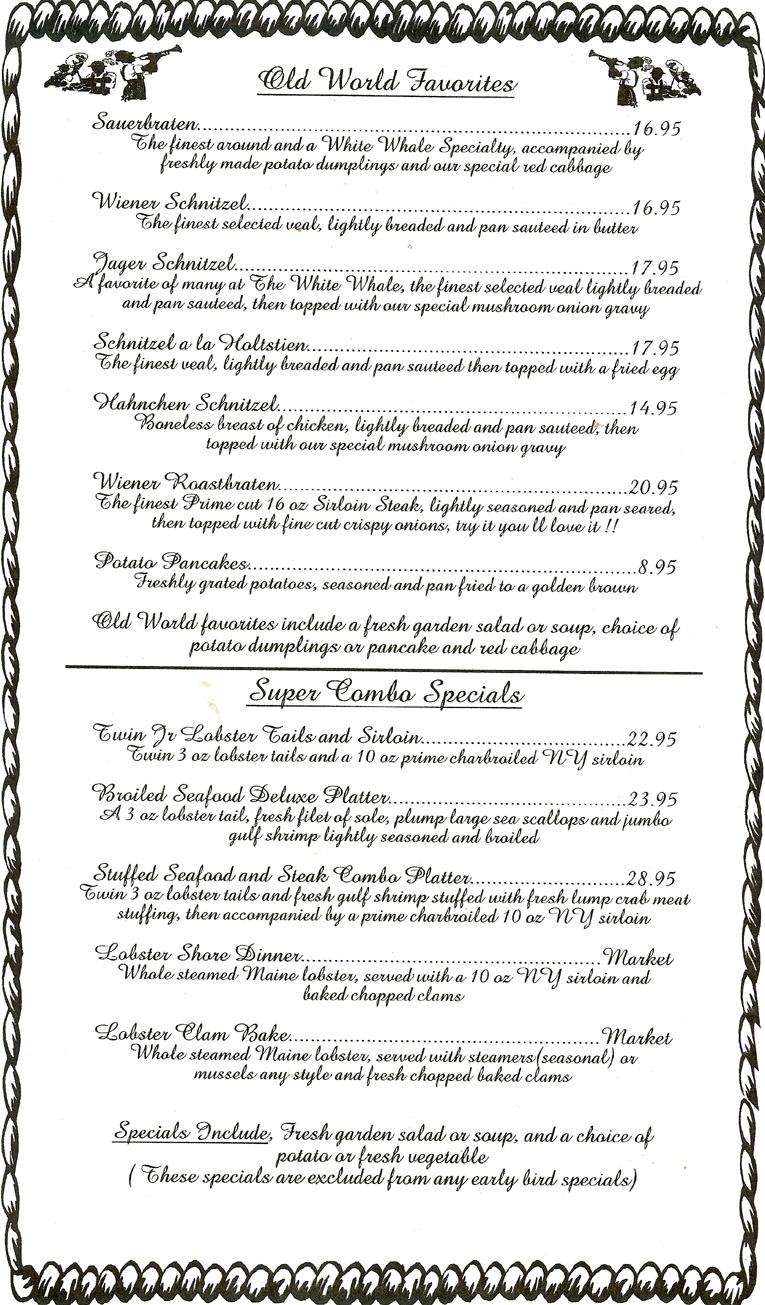 Old World Favorites
Sauerbraten...............................................................16.95
The finest around and a White Whale Specialty, accompanied by
freshly made potato dumplings and our special red cabbage
Wiener Schnitzel........................................................16.95
The finest selected veal, lightly breaded and pan sauteed in butter
Jager Schnitzel..........................................................17.95
A favorite of many at The White Whale, the finest selected veal lightly breaded
and pan sauteed, then topped with our special mushroom onion gravy
Schnitzel a la Holtstien...............................................17.95
The finest veal, lightly breaded and pan sauteed then topped with a fried egg
Hahnchen Schnitzel...................................................14.95
Boneless breast of chicken, lightly breaded and pan sauteed, then
topped with our special mushroom onion gravy
Wiener Roastbraten...................................................20.95
The finest Prime cut 16 oz Sirloin Steak, lightly seasoned and pan seared,
then topped with fine cut crispy onions, try it you ll love it !!
Potato Pancakes.........................................................8.95
Freshly grated potatoes, seasoned and pan fried to a golden brown
Old World favorites include a fresh garden salad or soup, choice of
potato dumplings or pancake and red cabbage
Super Combo Specials
Twin Jr Lobster Tails and Sirloin..............................22.95
Twin 3 oz lobster tails and a 10 oz prime charbroiled NY sirloin
Broiled Seafood Deluxe Platter...................................23.95
A 3 oz lobster tail, fresh filet of sole, plump large sea scallops and jumbo
gulf shrimp lightly seasoned and broiled
Stuffed Seafood and Steak Combo Platter.......................28.95
Twin 3 oz lobster tails and fresh gulf shrimp stuffed with fresh lump crab meat
stuffing, then accompanied by a prime charbroiled 10 oz NY sirloin
Lobster Shore Dinner............................................Market
Whole steamed Maine lobster, served with a 10 oz NY sirloin and
baked chopped clams
Lobster Clam Bake..............................................Market
Whole steamed Maine lobster, served with steamers(seasonal) or
mussels any style and fresh chopped baked clams
Specials Include, Fresh garden salad or soup, and a choice of
potato or fresh vegetable
( These specials are excluded from any early bird specials)